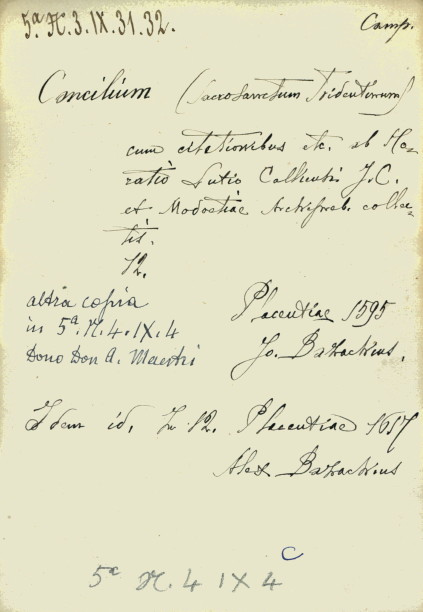 5ª N.3.IX.31.32. Camp.
Concilium (Sacrosanctum Tridentinum)
cum citationibus etc. ab Ho-
ratio Lutio Calliensi J.C.
et Modoetiae Archipresb. collec-
tis.
12.
Placentiae 1595
Jo. Bazachius.
altra copia
in 5ª.N.4.IX.4
Dono Don A. Maestri
Idem id. In 12. Placentiae
Alex Bazachius
5ª N.4 IX 4 C